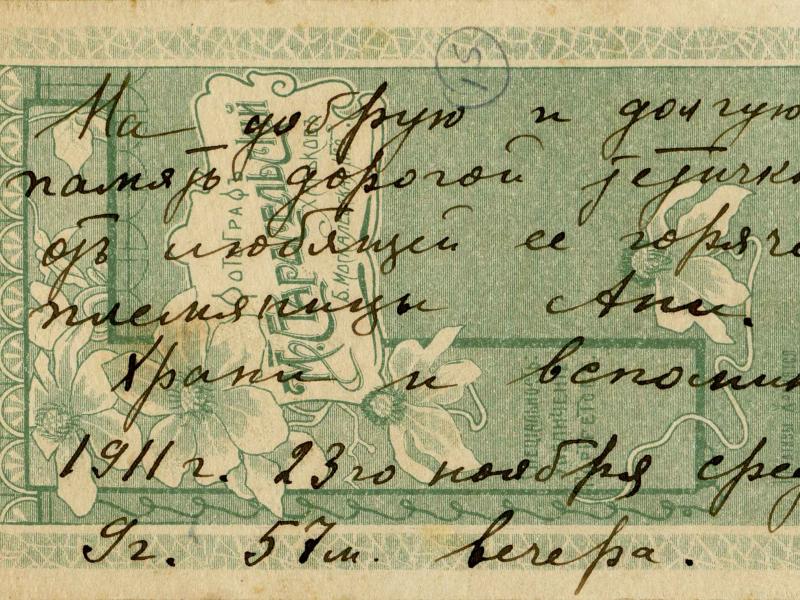 На добрую и долгую
память дорогой тетички
отъ любящей ее горячо
племяницы Ани.
Храни и вспомин
1911 г. 23го ноября сред
9г. 57м. вечера.
15
ФОТОГРАФЪ